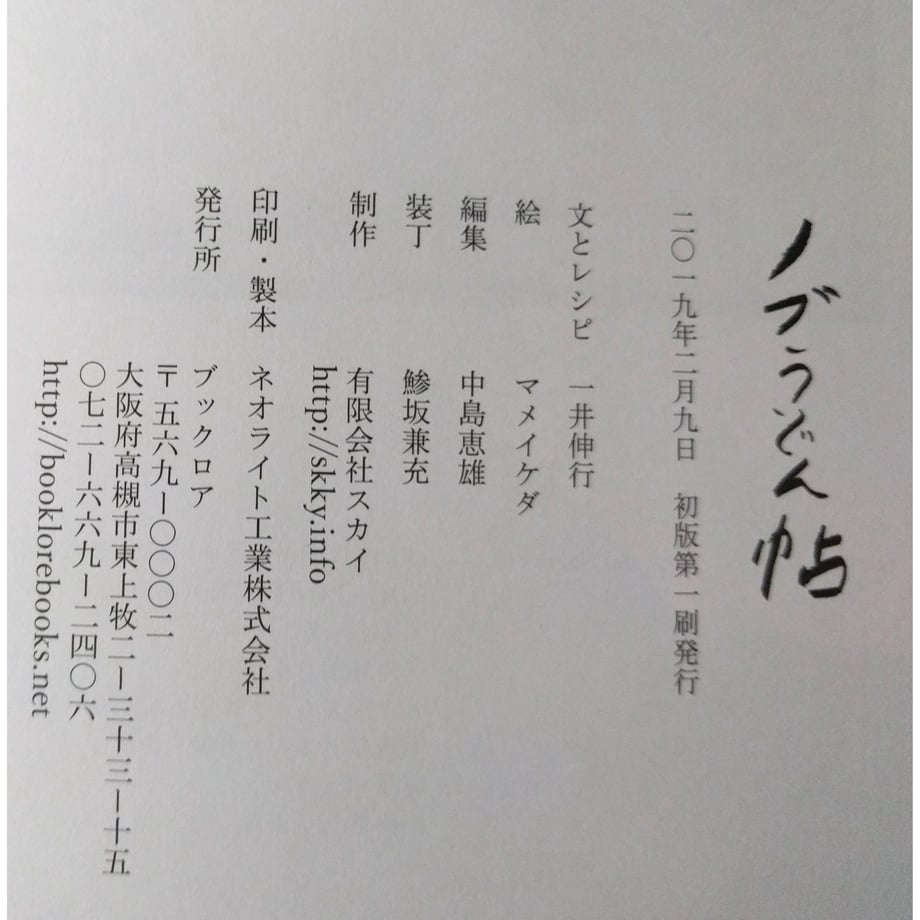 ノブうどん帖
二〇一九年二月九日　初版第一刷発行
文とレシピ　一井伸行
絵　マメイケダ
編集　中島恵雄
装丁　鯵坂兼充
制作　有限会社スカイ
http://skky.info
印刷・製本　ネオライト工業株式会社
発行所　ブックロア
〒五六九ー〇〇〇二
大阪府高槻市東上牧二ー三十三ー十五
〇七二ー六六九ー二四〇六
http://booklorebooks.net